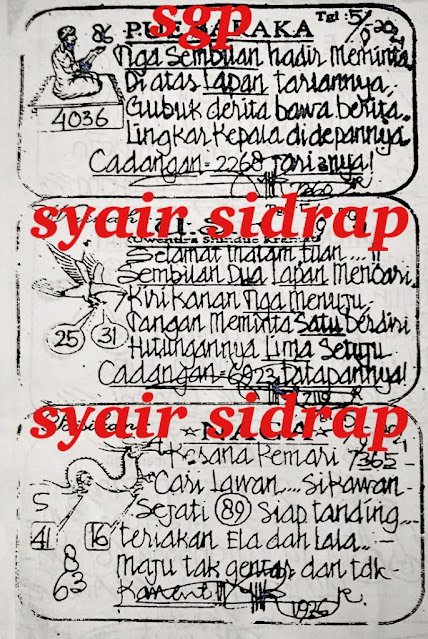 sgp
Tgl : 5/
86
Tiga Sembilan hadir Meminta
Di atas Lapan tariannya,
Gubuk derita bawa berita..
Lingkar Kepala didepannya
4036
Cadangan = 2268 Tari 3nya!
syair sidrap
Selamat malam tuan....!!
Sembilan Dua Lapan Mencari
Kiri Kanan Tiga Menuju
Tangan Meminta Satu berdiri
25 31
Hitungannya Lima Setuju
Cadangan = 6923 Ditapannya!
syair sidrap
NAGA
Kesana Kemari 7365
Cari Lawan.... Si Kawan
5
Sejati 89 Siap tanding...
41 16
teriakan Ela dan Lala..
8
Maju tak gentar dan tdk
63
1926